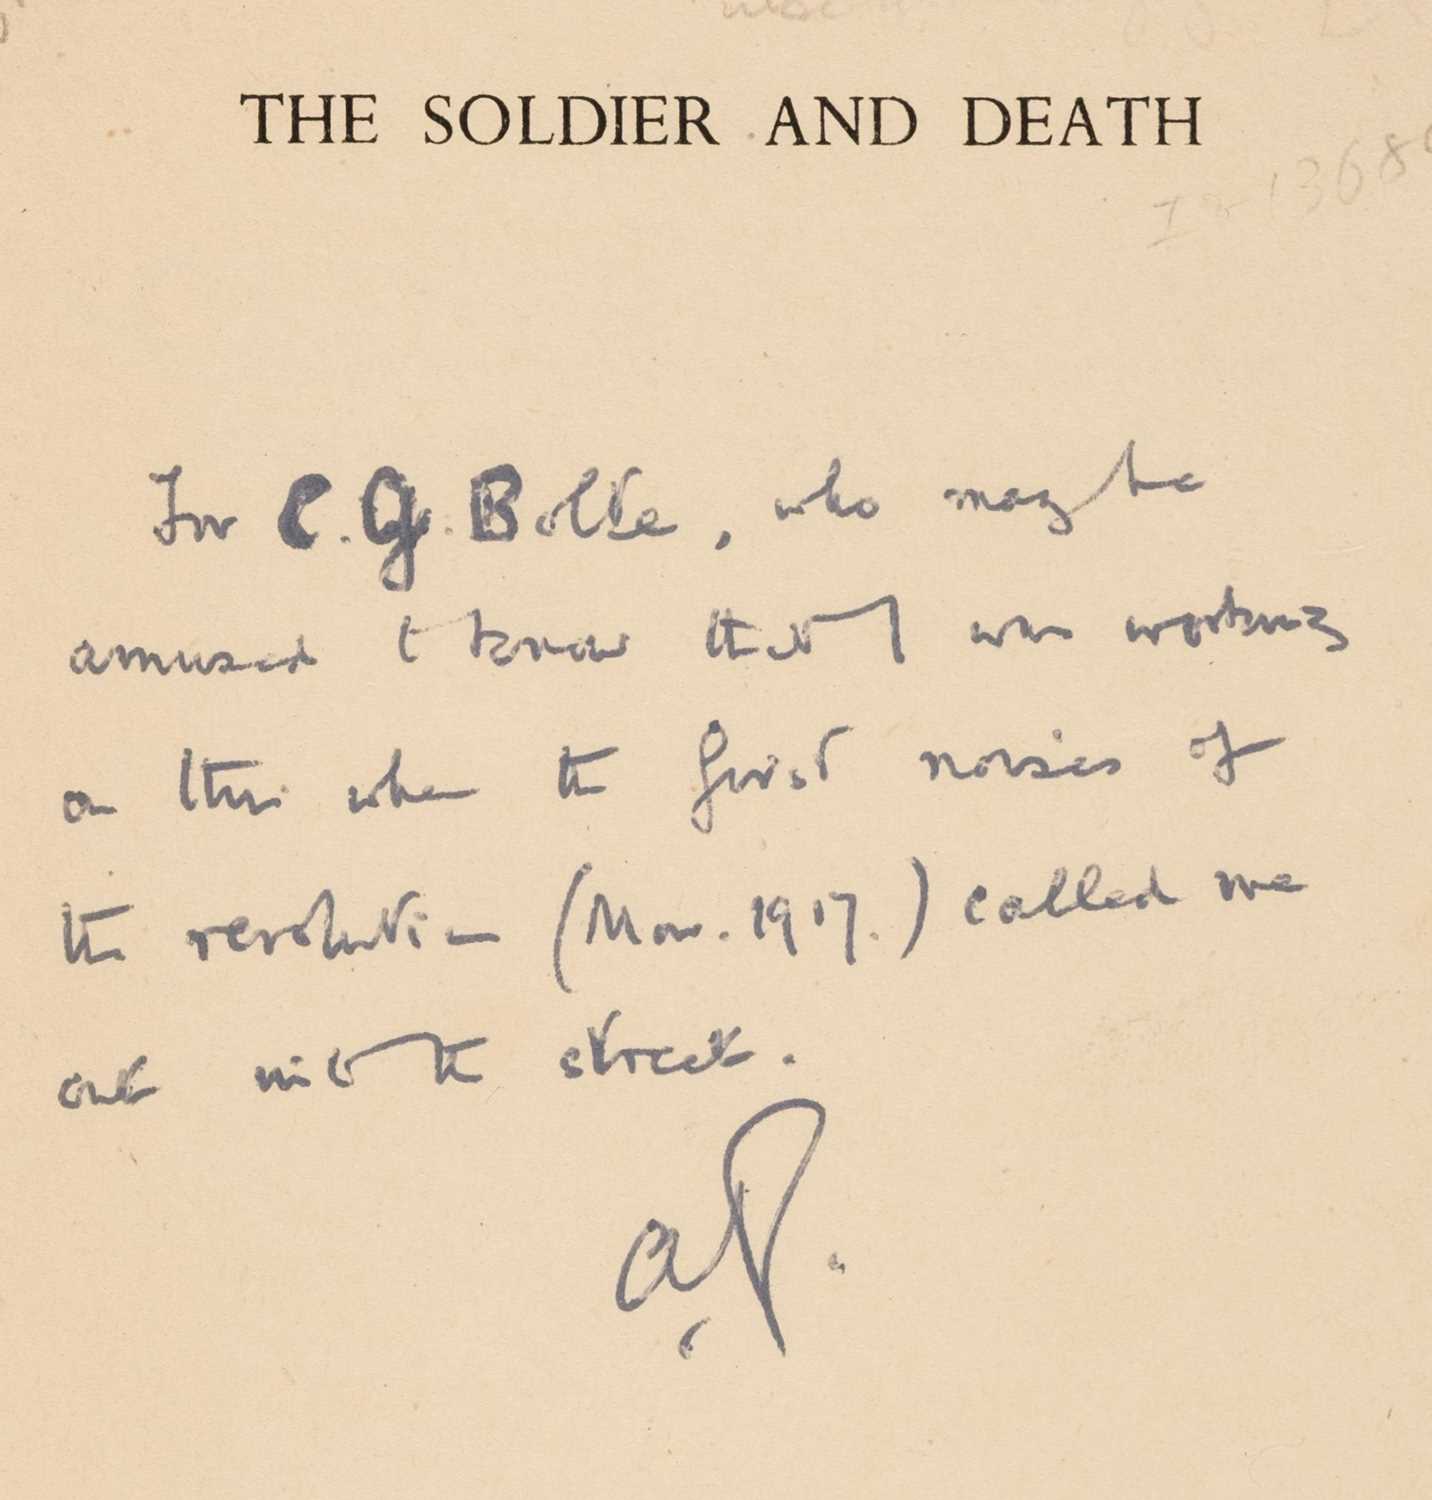 THE SOLDIER AND DEATH
For C. G. Bolte, who may be
amused to know that I was working
on this when the first noises of
the revolution (Mar. 1917.) called me
out into the street.